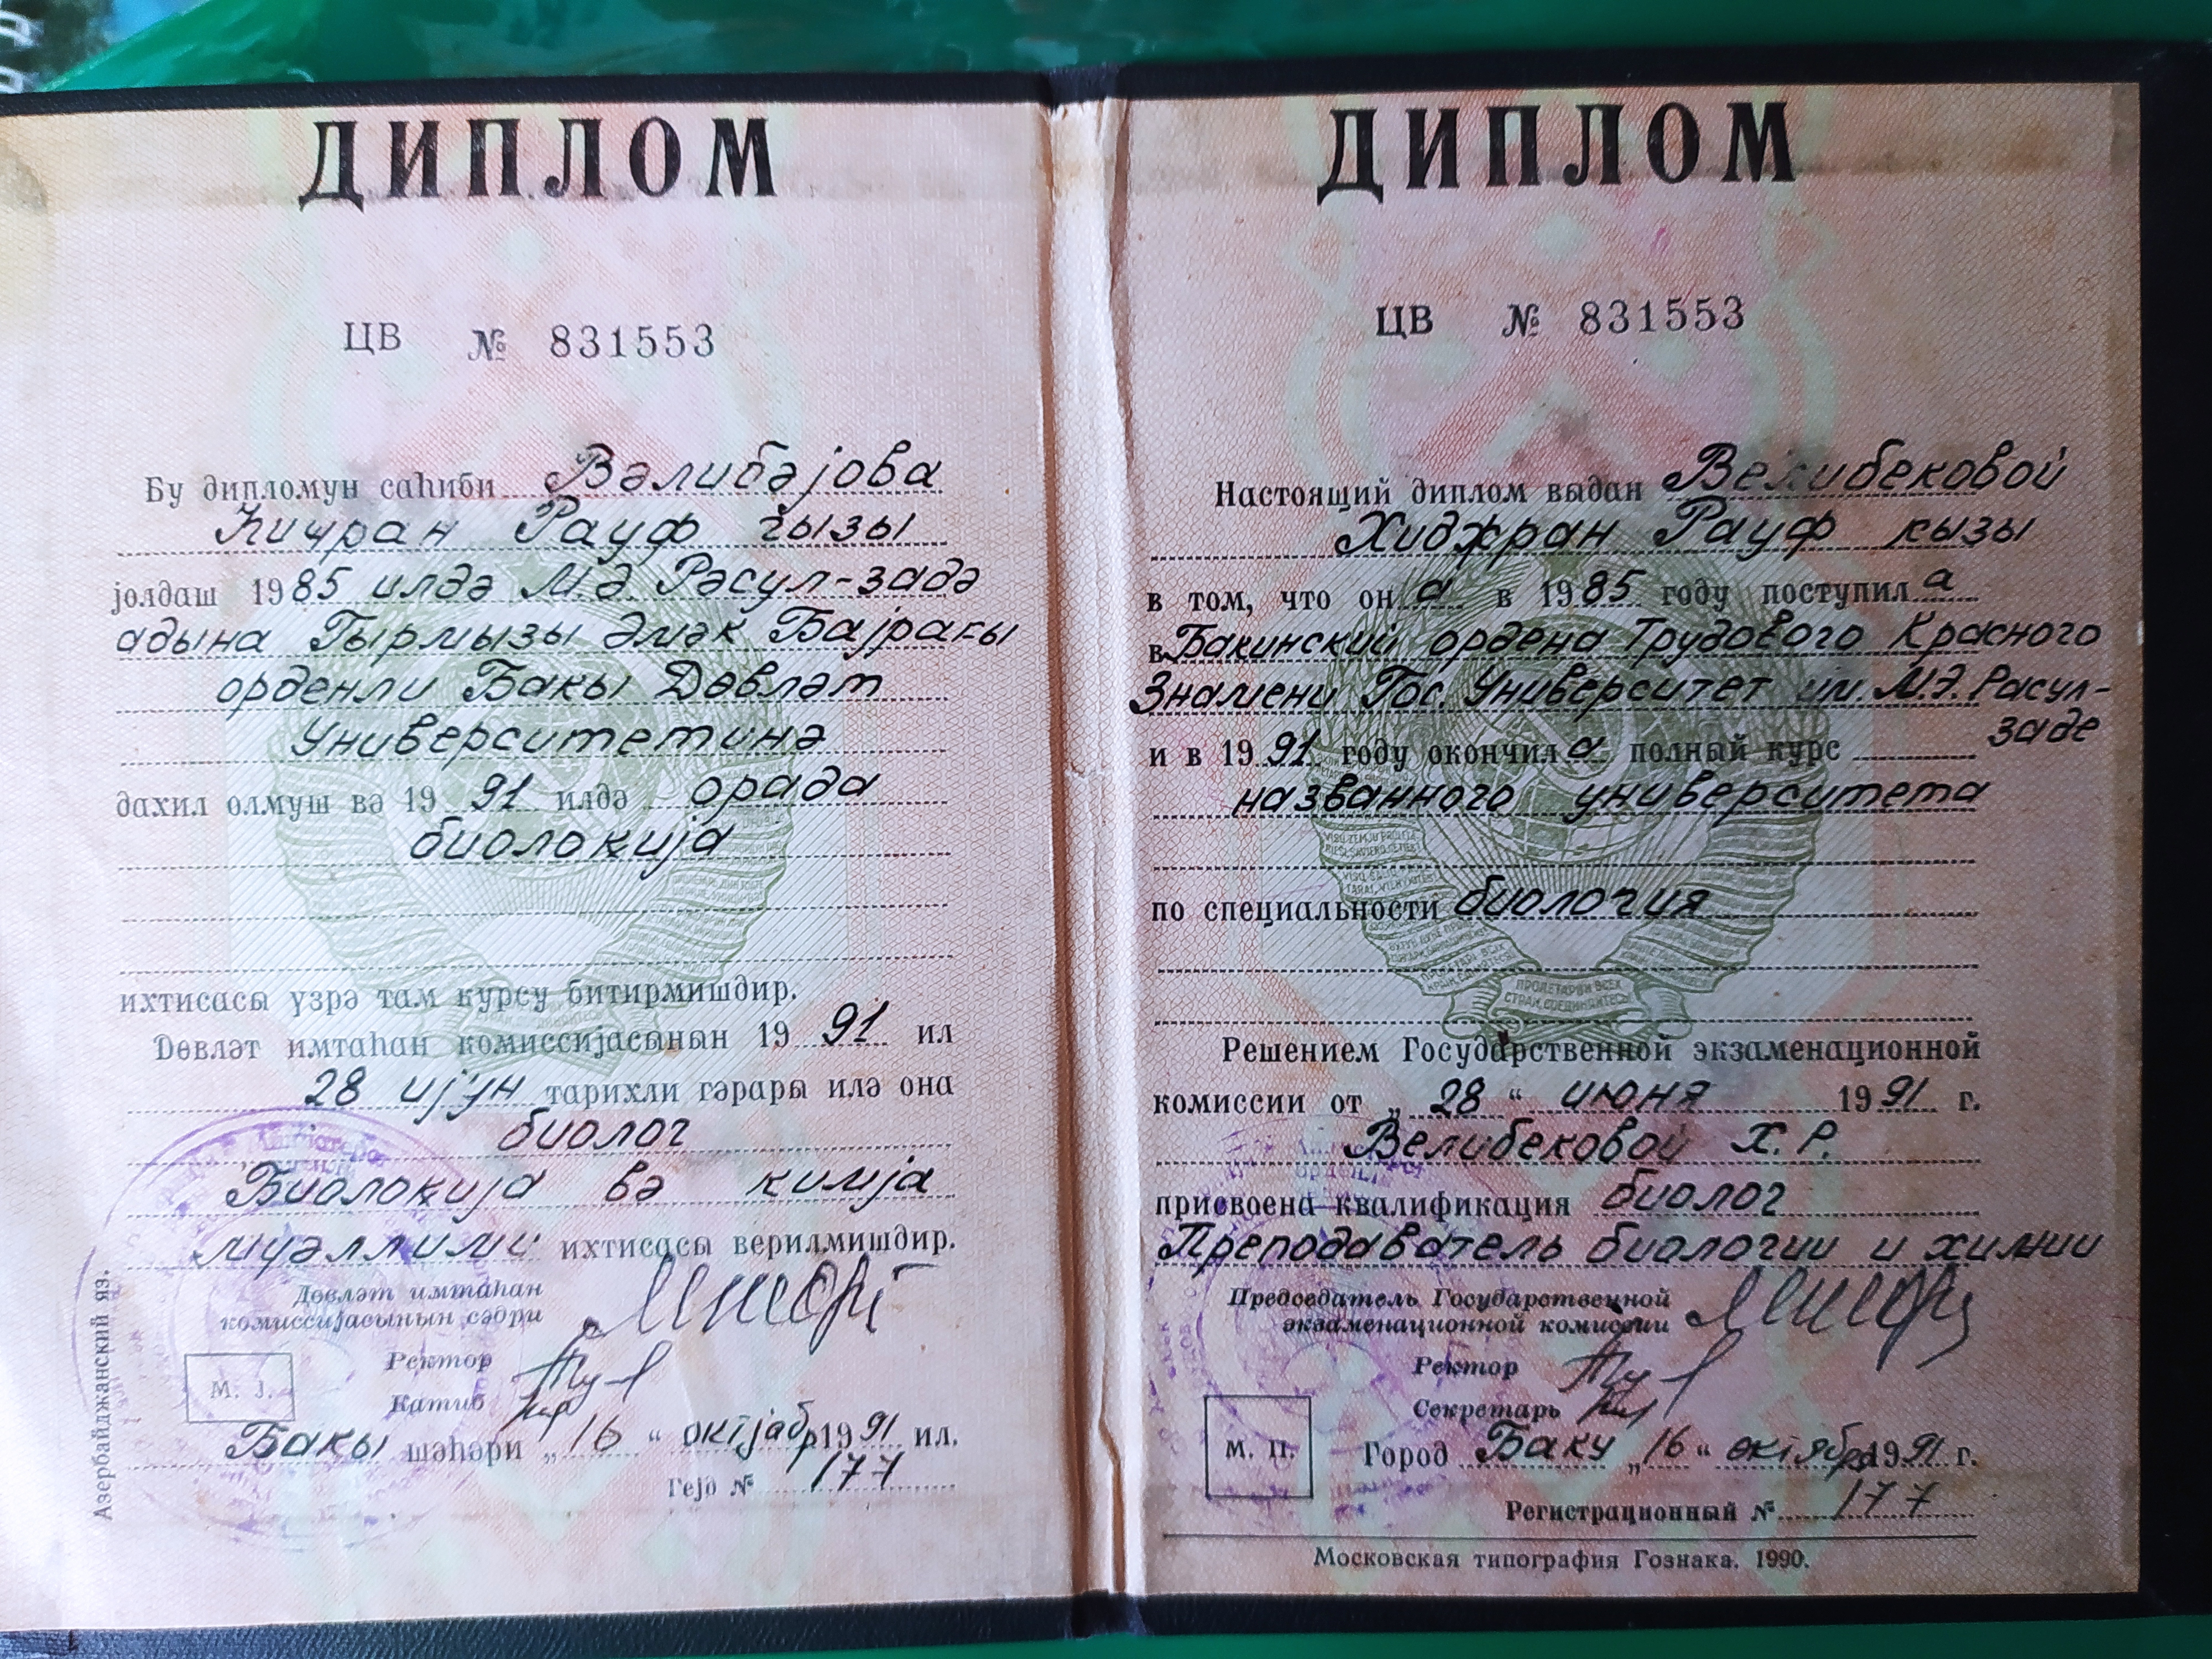 ДИПЛОМ
ЦВ № 831553
Бу дипломун саһиби Вәлибәјова
Һиҹран Рауф гызы
јолдаш 1985 илдә М.Ә. Рәсул-задә
адына Гырмызы Әмәк Бајрағы
орденли Бакы Дөвләт
Университетинә
дахил олмуш вә 1991 илдә орада
биолоҝија
ихтисасы үзрә там курсу битирмишдир.
Дөвләт имтаһан комиссијасынын 1991 ил
28 ијун тарихли гәрары илә она
биолог
Биолоҝија вә кимја
муәллими ихтисасы верилмишдир.
Дөвләт имтаһан
комиссијасынын сәдри
Ректор
М. Ј.
Катиб
Бакы шәһәри „16“ октјабр 1991 ил.
Гејд № 177
Азербайджанский яз.
ДИПЛОМ
ЦВ № 831553
Настоящий диплом выдан Велибековой
Хиджран Рауф кызы
в том, что он а в 1985 году поступил а
в Бакинский ордена Трудового Красного
Знамени Гос. Университет им. М.Э. Расул-
заде
и в 1991 году окончил а полный курс
названного университета
по специальности биология
Решением Государственной экзаменационной
комиссии от „28“ июня 1991 г.
Велибековой Х.Р.
присвоена квалификация биолог
Преподаватель биологии и химии
Председатель Государственной
экзаменационной комиссии
Ректор
Секретарь
М. П.
Город Баку „16“ октября 1991 г.
Регистрационный № 177
Московская типография Гознака. 1990.
ПРОЛЕТАРИИ ВСЕХ
СТРАН, СОЕДИНЯЙТЕСЬ!